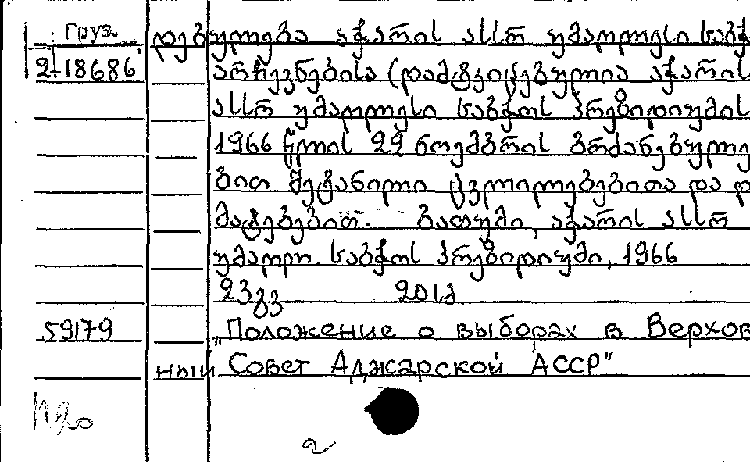 Груз.
დებულება აჭარის ასსრ უმაღლესი საბჭ
2-18686 არჩევნებისა (დამტკიცებულია აჭარის
ასსრ უმაღლესი საბჭოს პრეზიდიუმის
1966 წლის 22 ნოემბრის ბრძანებულე
ბით შეტანილი ცვლილებებითა და დ
მატებებით. ბათუმი, აჭარის ასსრ
უმაღლ. საბჭოს პრეზიდიუმი, 1966
23გვ 20სმ
59179 „Положение о выборах в Верхов
ный Совет Аджарской АССР"